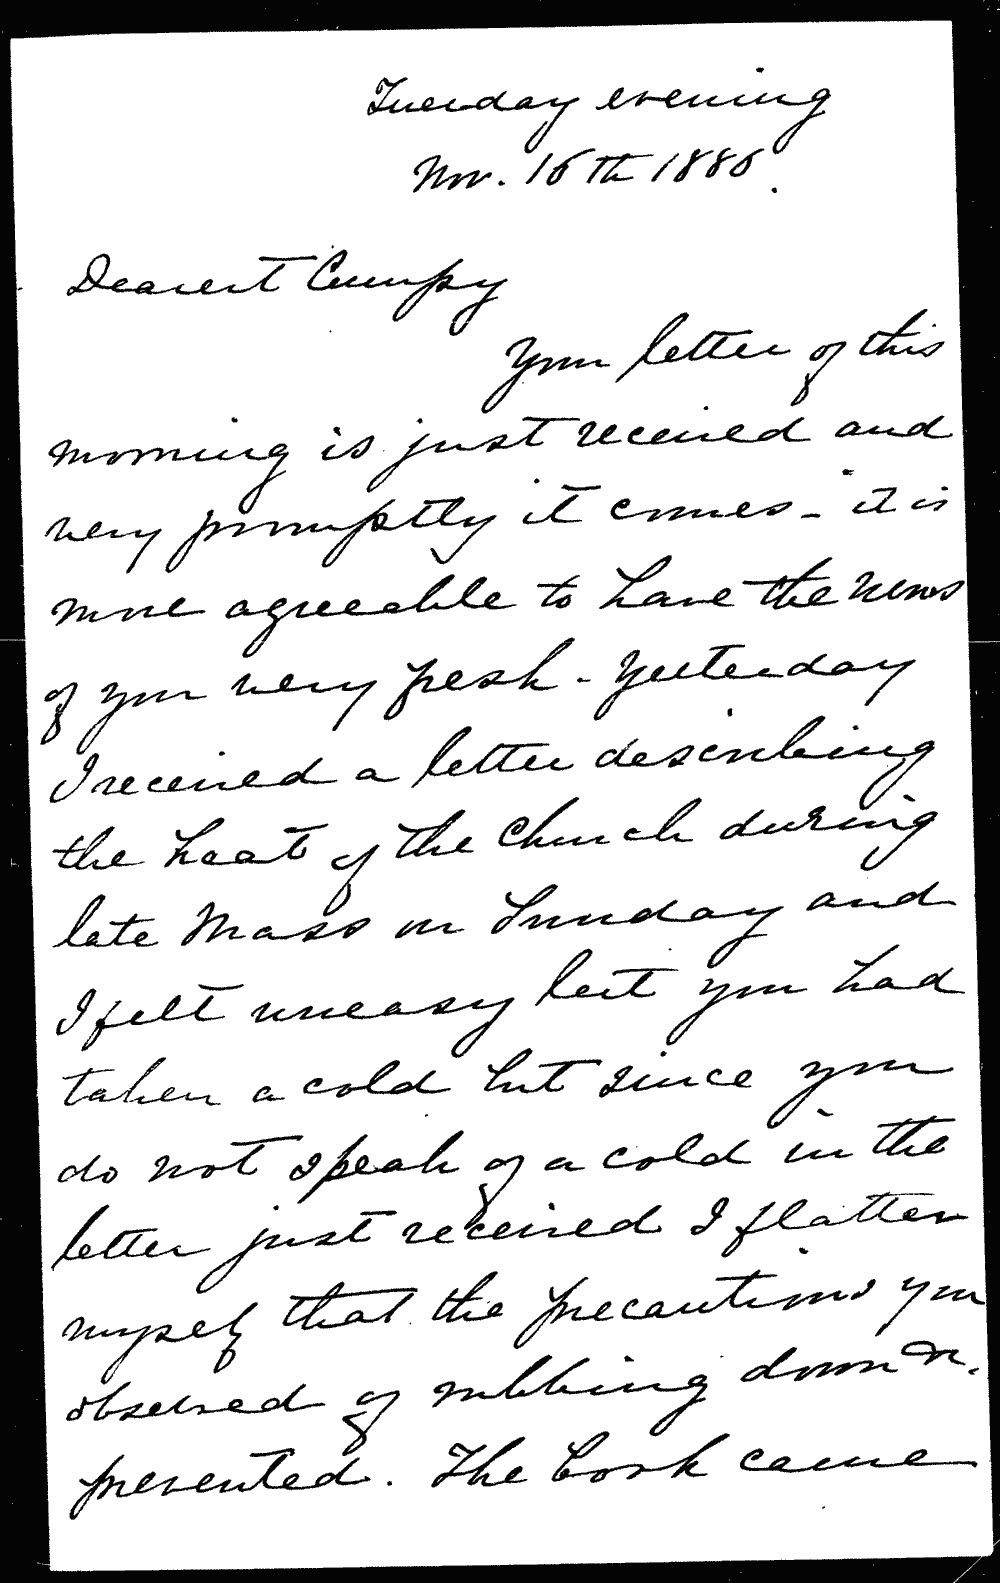 Tuesday evening
Nov. 16th 1886.
Dearest Cumpy
Your letter of this
morning is just received and
very promptly it comes - it is
more agreeable to have the news
of you very fresh - Yesterday
I received a letter describing
the heat of the Church during
late Mass on Sunday and
I felt uneasy lest you had
taken a cold but since you
do not speak of a cold in the
letter just received I flatter
myself that the precautions you
observed of rubbing down &c.
prevented. The Cook came